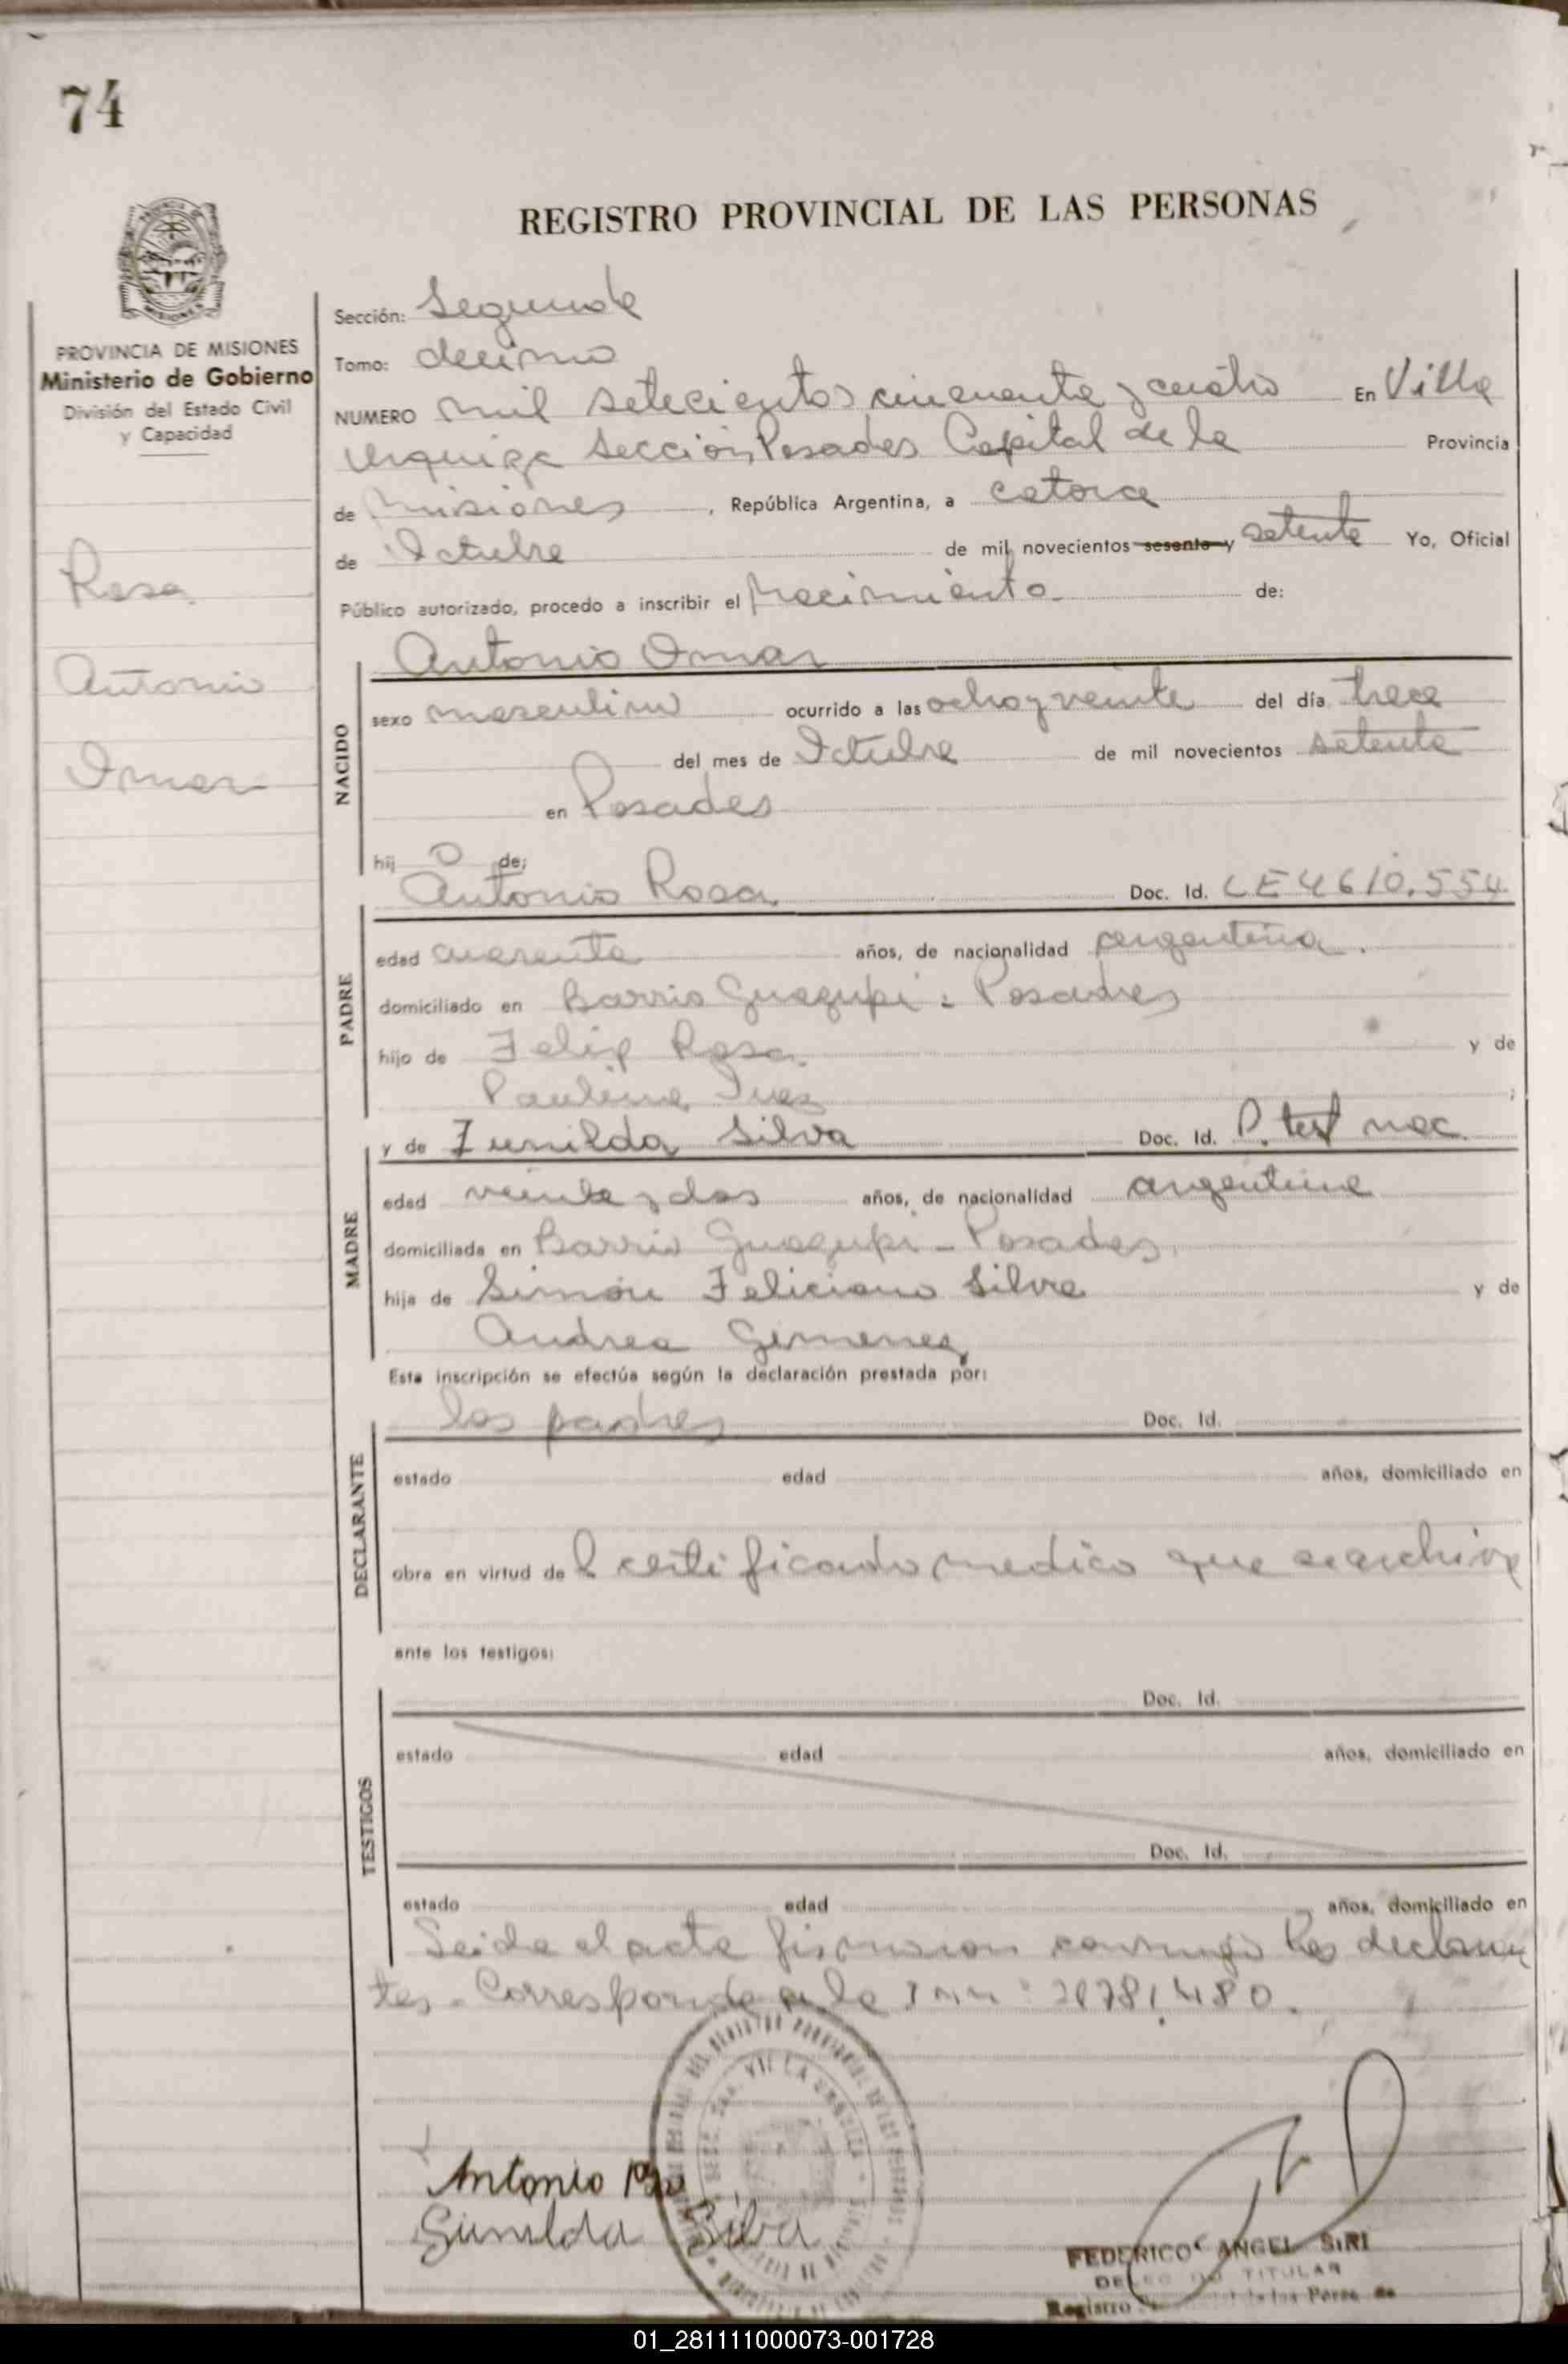 74
REGISTRO PROVINCIAL DE LAS PERSONAS
PROVINCIA DE MISIONES
Ministerio de Gobierno
División del Estado Civil
y Capacidad
Rosa
Antonio
Omar
Sección: Segunda
Tomo: decimo
NUMERO mil setecientos cincuenta y cuatro En Villa
Urquiza Sección Posadas Capital de la Provincia
de Misiones, República Argentina, a catorce
de Octubre de mil novecientos sesenta y setenta Yo, Oficial
Público autorizado, procedo a inscribir el nacimiento de:
NACIDO
Antonio Omar
sexo masculino ocurrido a las ocho y veinte del día trece
del mes de Octubre de mil novecientos setenta
en Posadas
hij o de:
PADRE
Antonio Rosa Doc. Id. LE 4610.554
edad cuarenta años, de nacionalidad argentina.
domiciliado en Barrio - Posadas
hijo de Felip Rosa y de
Paulina ;
MADRE
y de Zunilda Silva Doc. Id. nac.
edad veinte y dos años, de nacionalidad argentina
domiciliada en Barrio - Posadas.
hija de Simón Feliciano Silva y de
Andrea Gimenez
Esta inscripción se efectúa según la declaración prestada por:
DECLARANTE
los padres Doc. Id.
estado edad años, domiciliado en
obra en virtud de l certificado medico que se archiva
ante los testigos:
TESTIGOS
Doc. Id.
estado edad años, domiciliado en
Doc. Id.
estado edad años, domiciliado en
Leida el acta firmaron conmigo los declaran
tes. Corresponde a la
Antonio
Silva
FEDERICO ANGEL SIRI
TITULAR
Registro
01_281111000073-001728